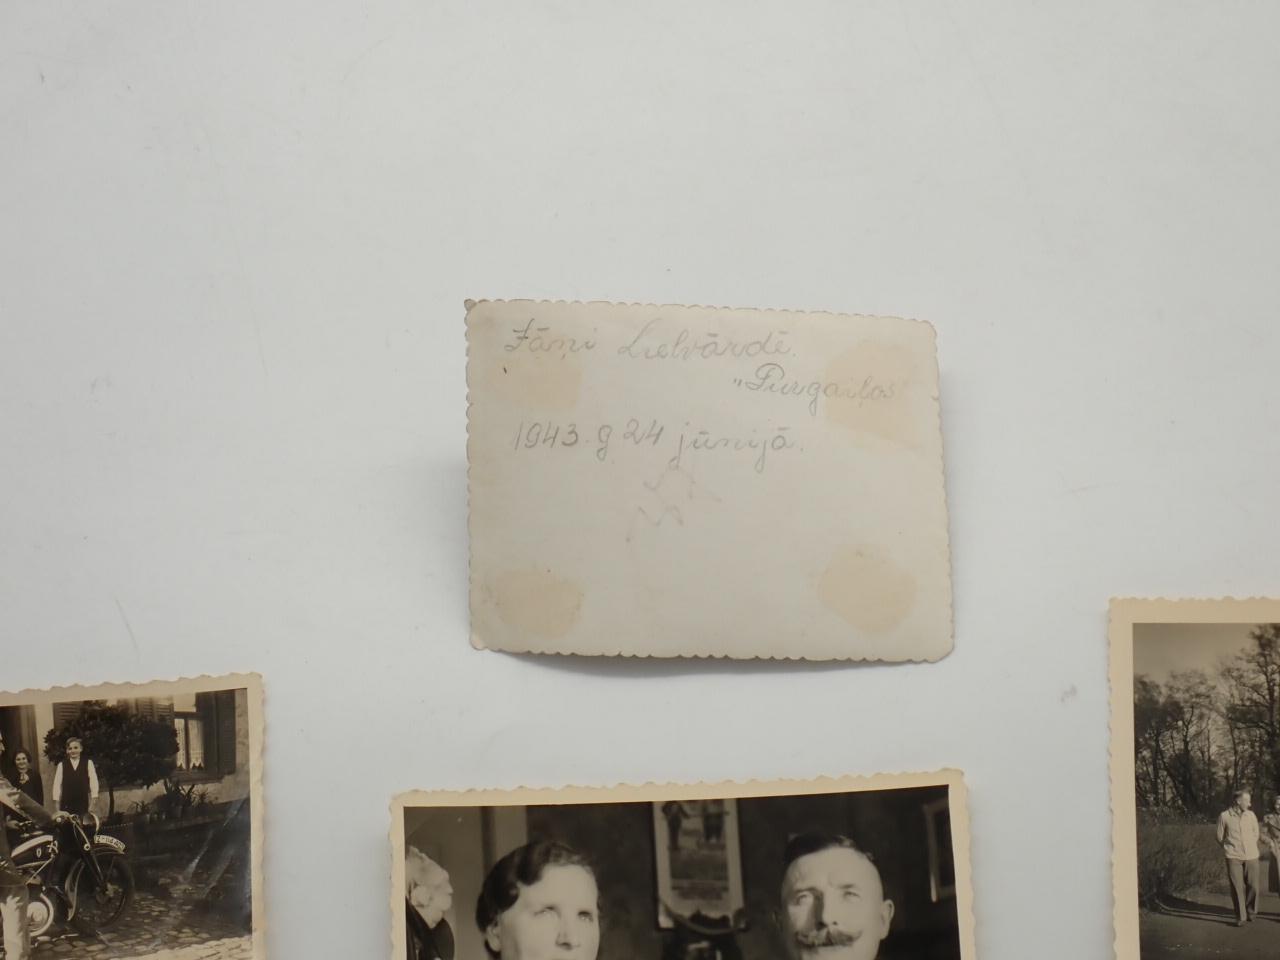 Jāņi Lielvārdē.
"Purgaiļos
1943. g 24 jūnijā.